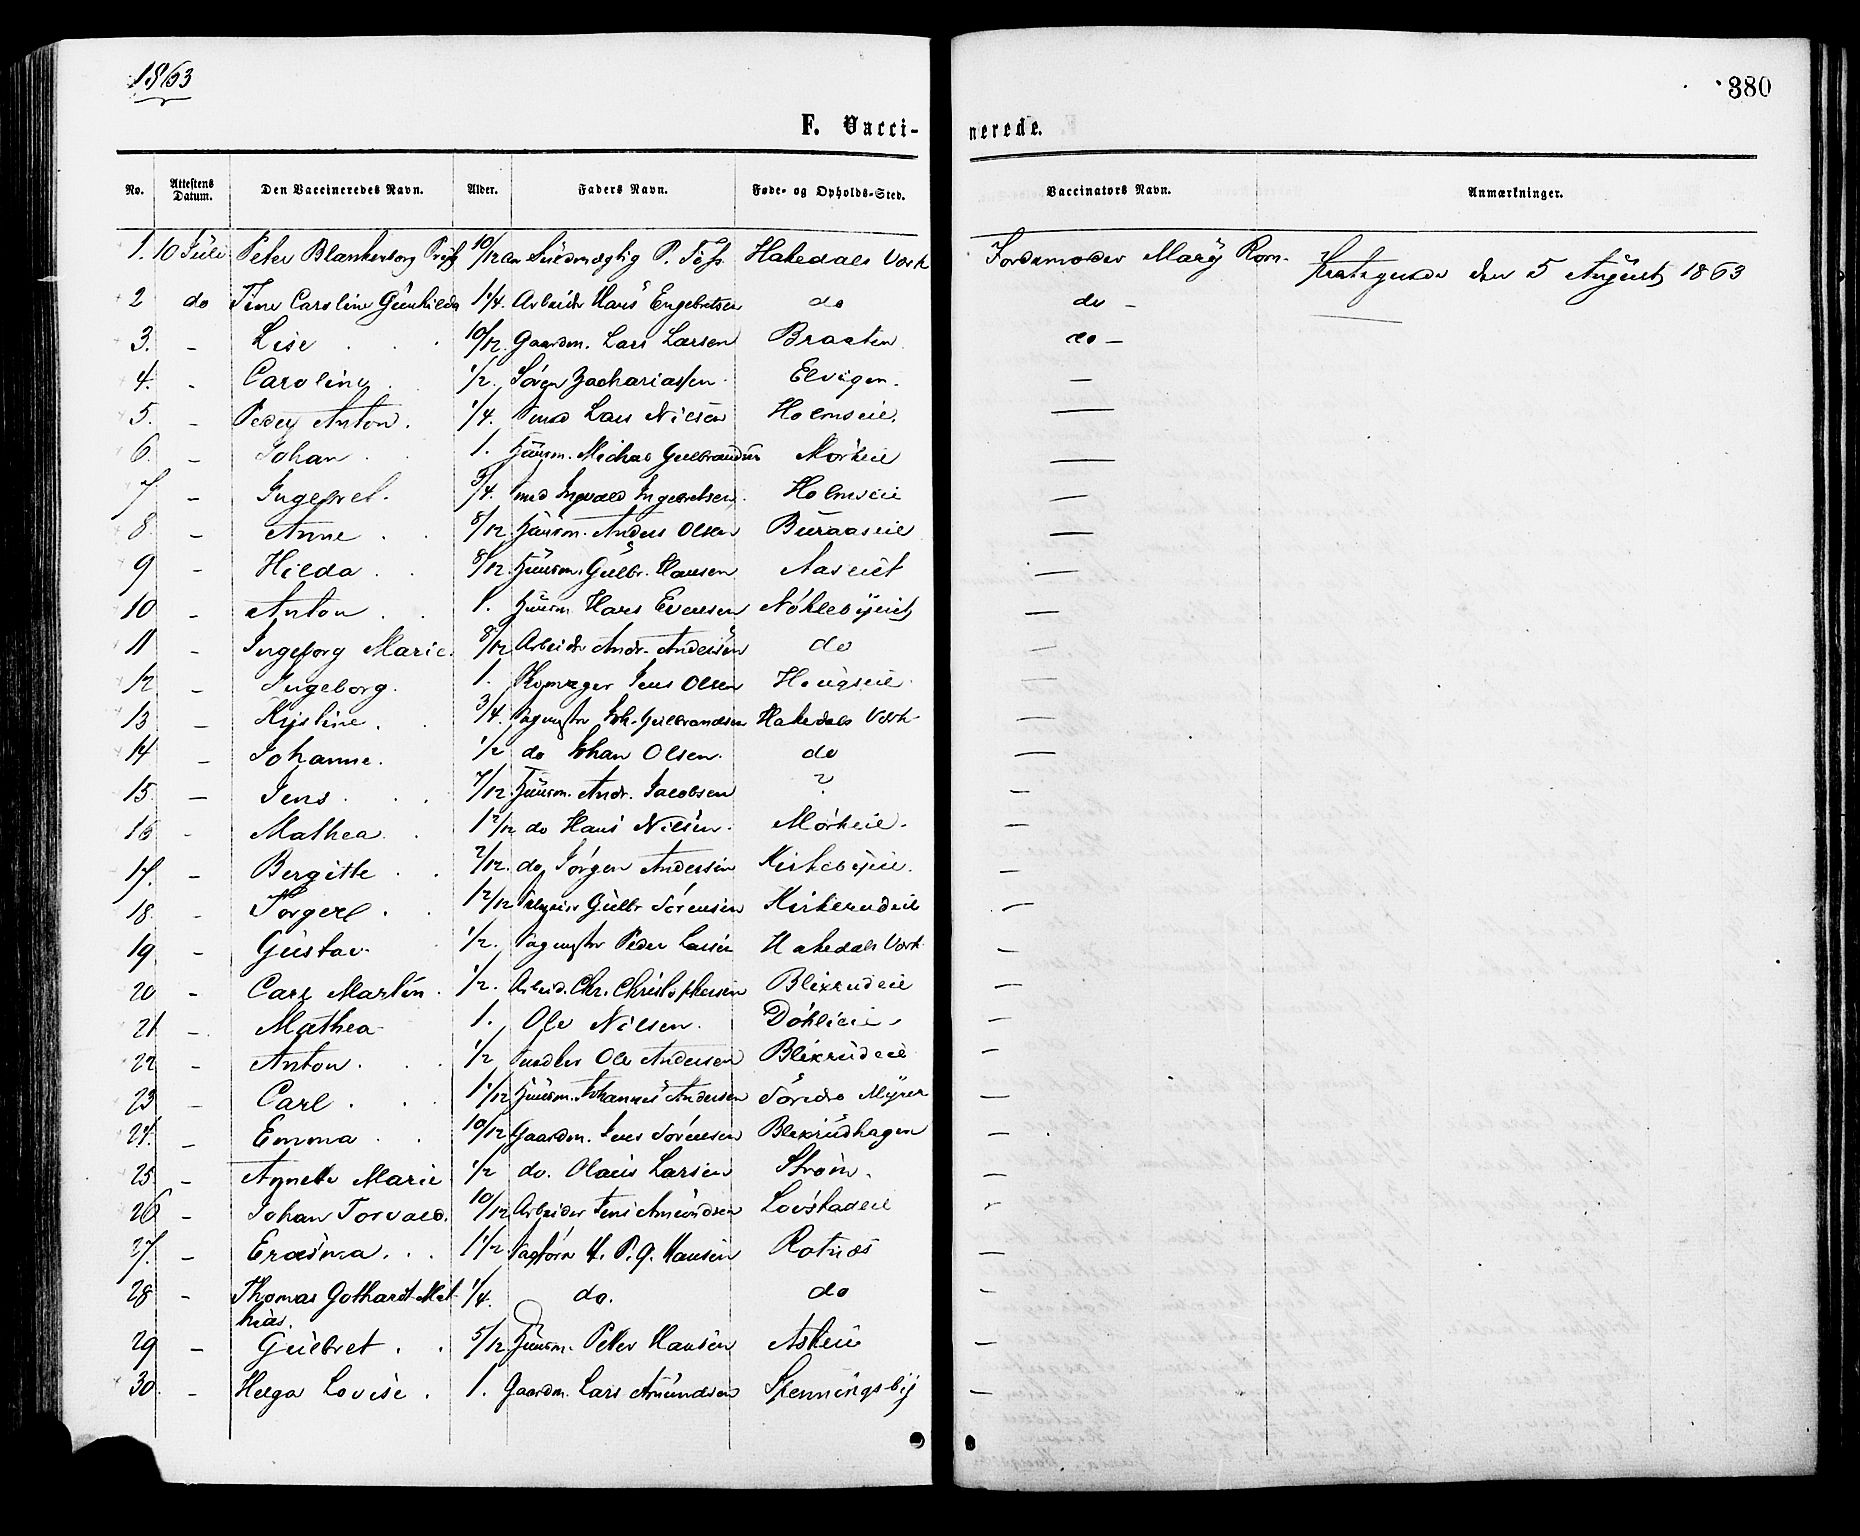 1863
380
F. Vacci-
nerede.
No. Attestens Datum. Den Vaccineredes Navn. Alder. Faders Navn. Føde- og Opholds-Sted. Vaccinators Navn. Anmærkninger.
1. 10 Juli Peter Blankenborg 10/12 P. Hakedals Værk Jordemoder Mary Rom den 5 August 1863
2 do Tine Caroline Gunhilda 1 1/4. Arbeider Hans Engebretsen do do -
3. - Lise 10/12. Gaardm. Lars Larsen Braaten do -
4. - Caroline 1/2. Søren Zachariassen Elvigen. —
5. - Peder Anton. 1/4. Smed Lars Nilsen Holmseie. —
6. - Johan 1. Huusm. Michael Gulbrandsen Mørkeie —
7 - Ingebret. 3/4. Smed Ingvald Ingebretsen Holmseie —
8. - Anne 8/12 Huusm. Anders Olsen Buraaseie —
9 - Hilda 8/12. Huusm. Gulbr. Hansen Aaseiet —
10 - Anton 1. Huusm Hans Evensen Nøklebyeiet —
11 - Ingeborg Marie. 8/12 Arbeider Andr. Andersen do —
12 - Ingeborg. 1. Jens Olsen Haugseie —
13 - Kristine. 3/4. Sagmstr Joh. Gulbrandsen Hakedals Værk —
14 - Johanne. 1/2 do Johan Olsen. do —
15. - Jens 7/12. Huusm. Andr. Jacobsen ? —
16 - Mathea 1 2/12 do Hans Nilsen. Mørkeie. —
17. - Bergitte 2/12. do Jørgen Andersen Kirkebyeie. —
18. - Torger 1 2/12 Gulbr Sørensen Kirkerudeie —
19 - Gustav 1/2. Sagmstr Peder Larsen Hakedals Værk —
20 - Carl Martin. 1/2. Arbeid. Chr. Christophersen Blixrudeie —
21. - Mathea 1. Ole Nilsen. Døhlieie —
22 - Anton. 1/2 Ole Andersen Blixrudeie —
23 - Carl. 1 1/12 Huusm. Johannes Andersen Søndre Myrer —
24. - Emma 10/12 Gaardm. Jens Sørensen Blixrudhagen —
25. - Agnethe Marie 1/2 do. Olaus Larsen Strøm. —
26 - Johan Torvald. 10/12 Arbeider Jens Amundsen Løvstadeie -
27. - Erasma. 1 1/2 H. P. G. Hansen Rotnæs —
28 - Thomas Gothardt Mat- 1/4. do. do —
hias.
29 - Gulbret 5/12 Huusm. Peter Hansen Askeie —
30. - Helga Lovise. 1. Gaardm. Lars Amundsen Slenningsby —